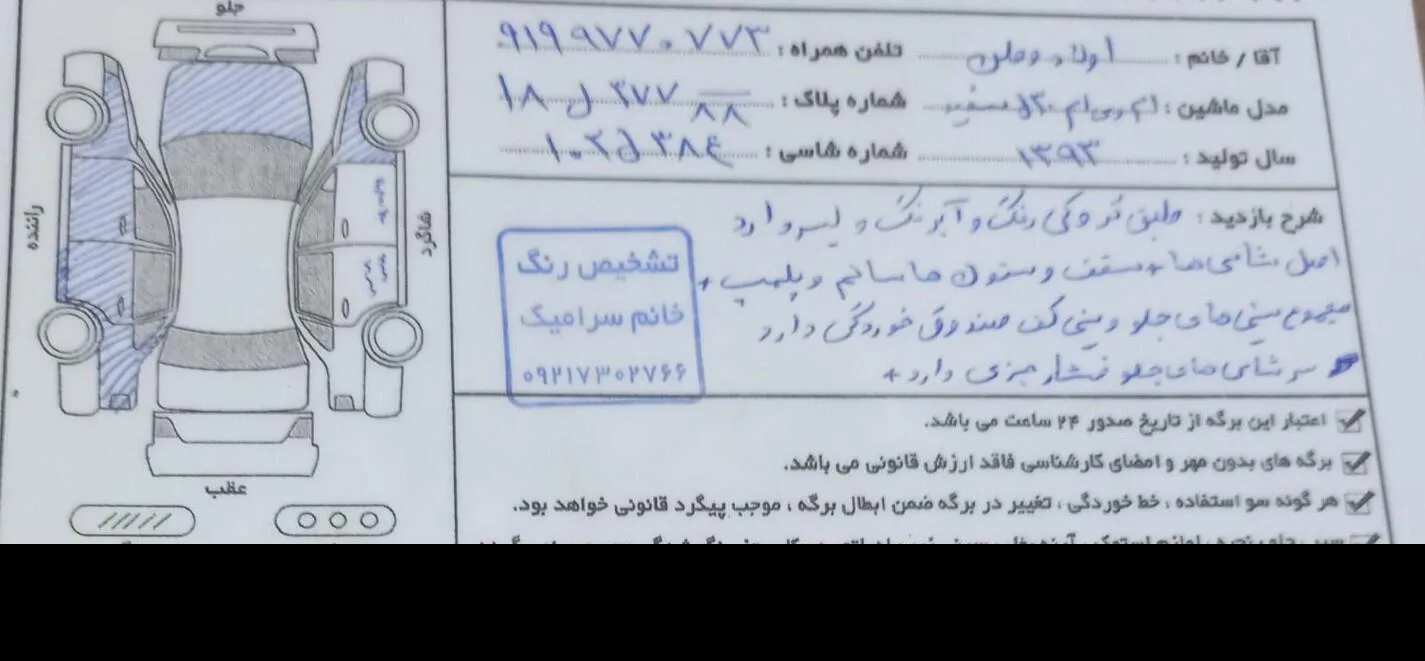 جلو
راننده
شاگرد
عقب
آقا / خانم : اولاد وطن تلفن همراه : ۹۱۹۹۷۷۰۷۷۳
مدل ماشین : ام وی ام سفید شماره پلاک : ۱۸ ل ۳۷۷ ۸۸
سال تولید : ۱۳۹۳ شماره شاسی :
شرح بازدید : طبق کروکی رنگ و آبرنگ و لیسه وارد
اصل شاسی ها + سقف و ستون ها سالم و پلمپ +
مجموع سینی های جلو و سینی کف صندوق خوردگی دارد
سر شاسی های جلو فشار جزئی دارد +
تشخیص رنگ
خانم سرامیک
۰۹۲۱۷۳۰۲۷۶۶
اعتبار این برگه از تاریخ صدور ۲۴ ساعت می باشد.
برگه های بدون مهر و امضای کارشناسی فاقد ارزش قانونی می باشد.
هر گونه سو استفاده ، خط خوردگی ، تغییر در برگه ضمن ابطال برگه ، موجب پیگرد قانونی خواهد بود.